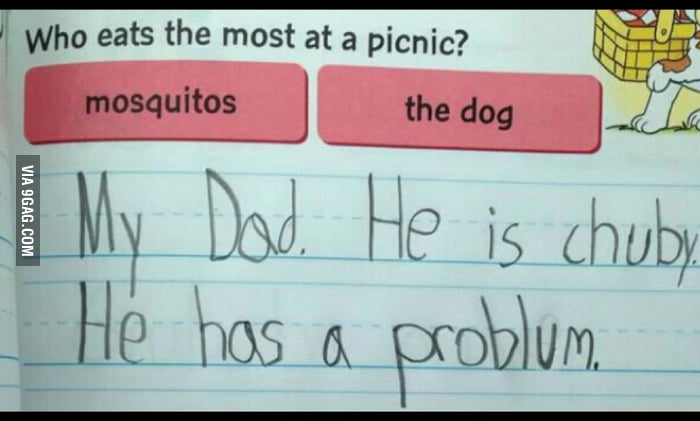 Who eats the most at a picnic?
mosquitos
the dog
VIA 9GAG.COM
My Dad. He is chuby.
He has a problum.